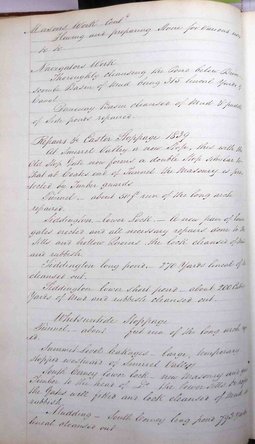 Masons Work Cont.d
Hewing and preparing Stone for various
&c &c
Navigators Work
Thoroughly cleansing the Line below
Basin of Mud being 151 lineal Yards
Canal
Basin cleansed of Mud &
of Side ponds repaired
Repairs @ Easter Stoppage 1839
At Tunnel Valley a new Stop, this with the
Old Stop Gate now forms a double Stop similar to
that at Coates end of Tunnel the Masonry is pro-
tected by Timber guards
Tunnel - about 50 ft run of the long arch
repaired
Siddington - Lower Lock - A new pair of lower
gates erected and all necessary repairs done to the
Sills and hollow Quoins the lock cleansed of mud
and rubbish
Siddington long pond. 270 Yards lineal
cleansed out
Siddington lower short pond - about 200 Cubic
Yards of Mud and rubbish cleansed out
Whitsuntide Stoppage
Tunnel - about feet run of the long arch
Tunnel Level Leakages - large temporary
stopper westward of Tunnel Valley
South Cerney lower Lock - new Masonry and
Timber to the head of Do. the lower Sills
the Gates well fitted and lock cleansed of Mud &
rubbish
Mudding - South Cerney long pond 779 Yards
lineal cleansed out